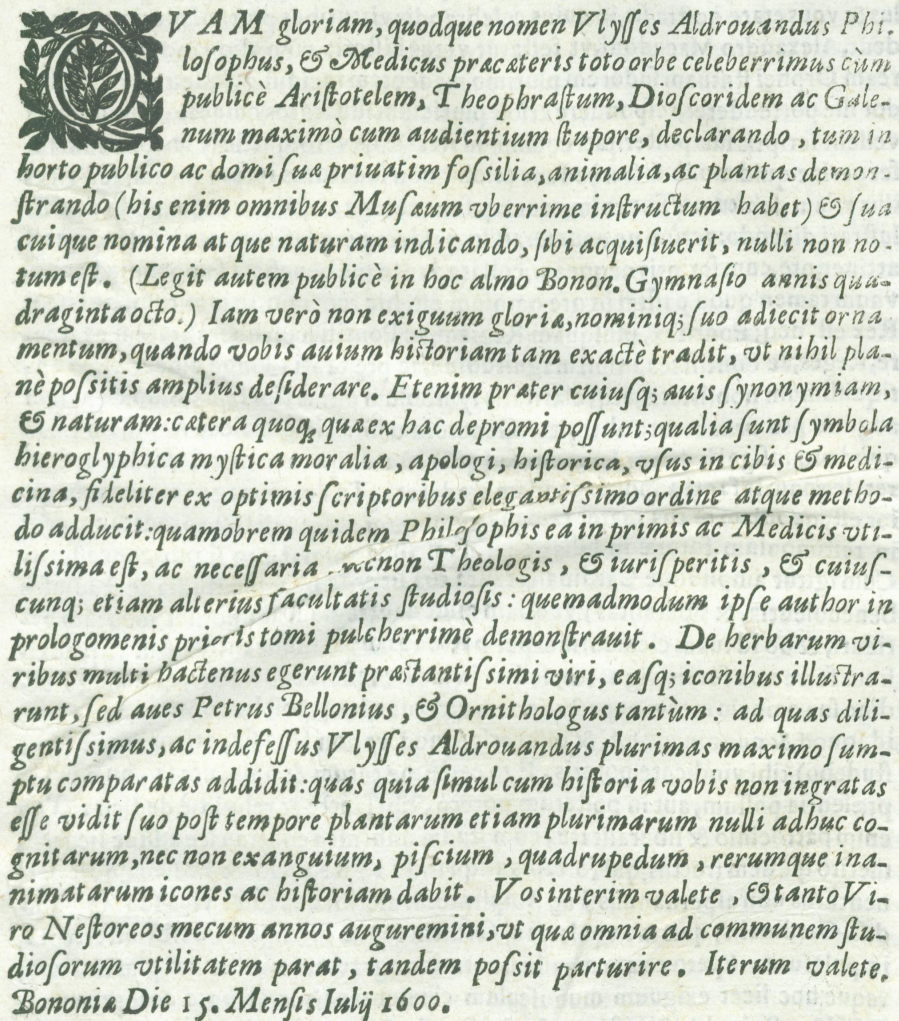 QVAM gloriam, quodque nomen Vlyſſes Aldrouandus Phi.
loſophus, & Medicus præcæteris toto orbe celeberrimus cùm
publicè Ariſtotelem, Theophraſtum, Dioſcoridem ac Gale-
num maximò cum audientium ſtupore, declarando, tum in
horto publico ac domi ſuæ priuatim foſſilia, animalia, ac plantas demon-
ſtrando (his enim omnibus Muſæum vberrime inſtructum habet) & ſua
cuique nomina atque naturam indicando, ſibi acquiſiuerit, nulli non no-
tum eſt. (Legit autem publicè in hoc almo Bonon. Gymnaſio annis qua-
draginta octo.) Iam verò non exiguum gloriæ, nominiq; ſuo adiecit orna
mentum, quando vobis auium hiſtoriam tam exactè tradit, vt nihil pla-
nè poſſitis amplius deſiderare. Etenim præter cuiuſq; auis ſynonymiam,
& naturam: cætera quoq; quæ ex hac depromi poſſunt; qualia ſunt ſymbola
hieroglyphica myſtica moralia, apologi, hiſtorica, vſus in cibis & medi-
cina, fideliter ex optimis ſcriptoribus elegantiſſimo ordine atque metho-
do adducit: quamobrem quidem Philoſophis ea in primis ac Medicis vti-
liſſima eſt, ac neceſſaria necnon Theologis, & iuriſperitis, & cuiuſ-
cunq; etiam alterius facultatis ſtudioſis: quemadmodum ipſe author in
prologomenis prioris tomi pulcherrimè demonſtrauit. De herbarum vi-
ribus multi hactenus egerunt præſtantiſſimi viri, eaſq; iconibus illuſtra-
runt, ſed aues Petrus Bellonius, & Ornithologus tantùm: ad quas dili-
gentiſſimus, ac indefeſſus Vlyſſes Aldrouandus plurimas maximo ſum-
ptu comparatas addidit: quas quia ſimul cum hiſtoria vobis non ingratas
eſſe vidit ſuo poſt tempore plantarum etiam plurimarum nulli adhuc co-
gnitarum, nec non exanguium, piſcium, quadrupedum, rerumque ina-
nimatarum icones ac hiſtoriam dabit. Vos interim valete, & tanto Vi-
ro Neſtoreos mecum annos auguremini, vt quæ omnia ad communem ſtu-
dioſorum vtilitatem parat, tandem poſſit parturire. Iterum valete.
Bononiæ Die 15. Menſis Iulij 1600.